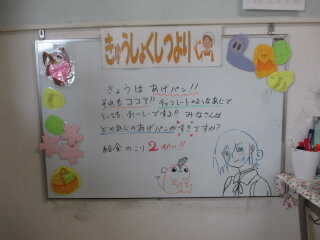 きゅうしょくしつより
きょうは あげパン!!
それも ココア!! チョコレートのようなあじで
とっても おいしいですよ!! みなさんは
どのあじのあげパンがすきですか?
給食のこり2かい!!